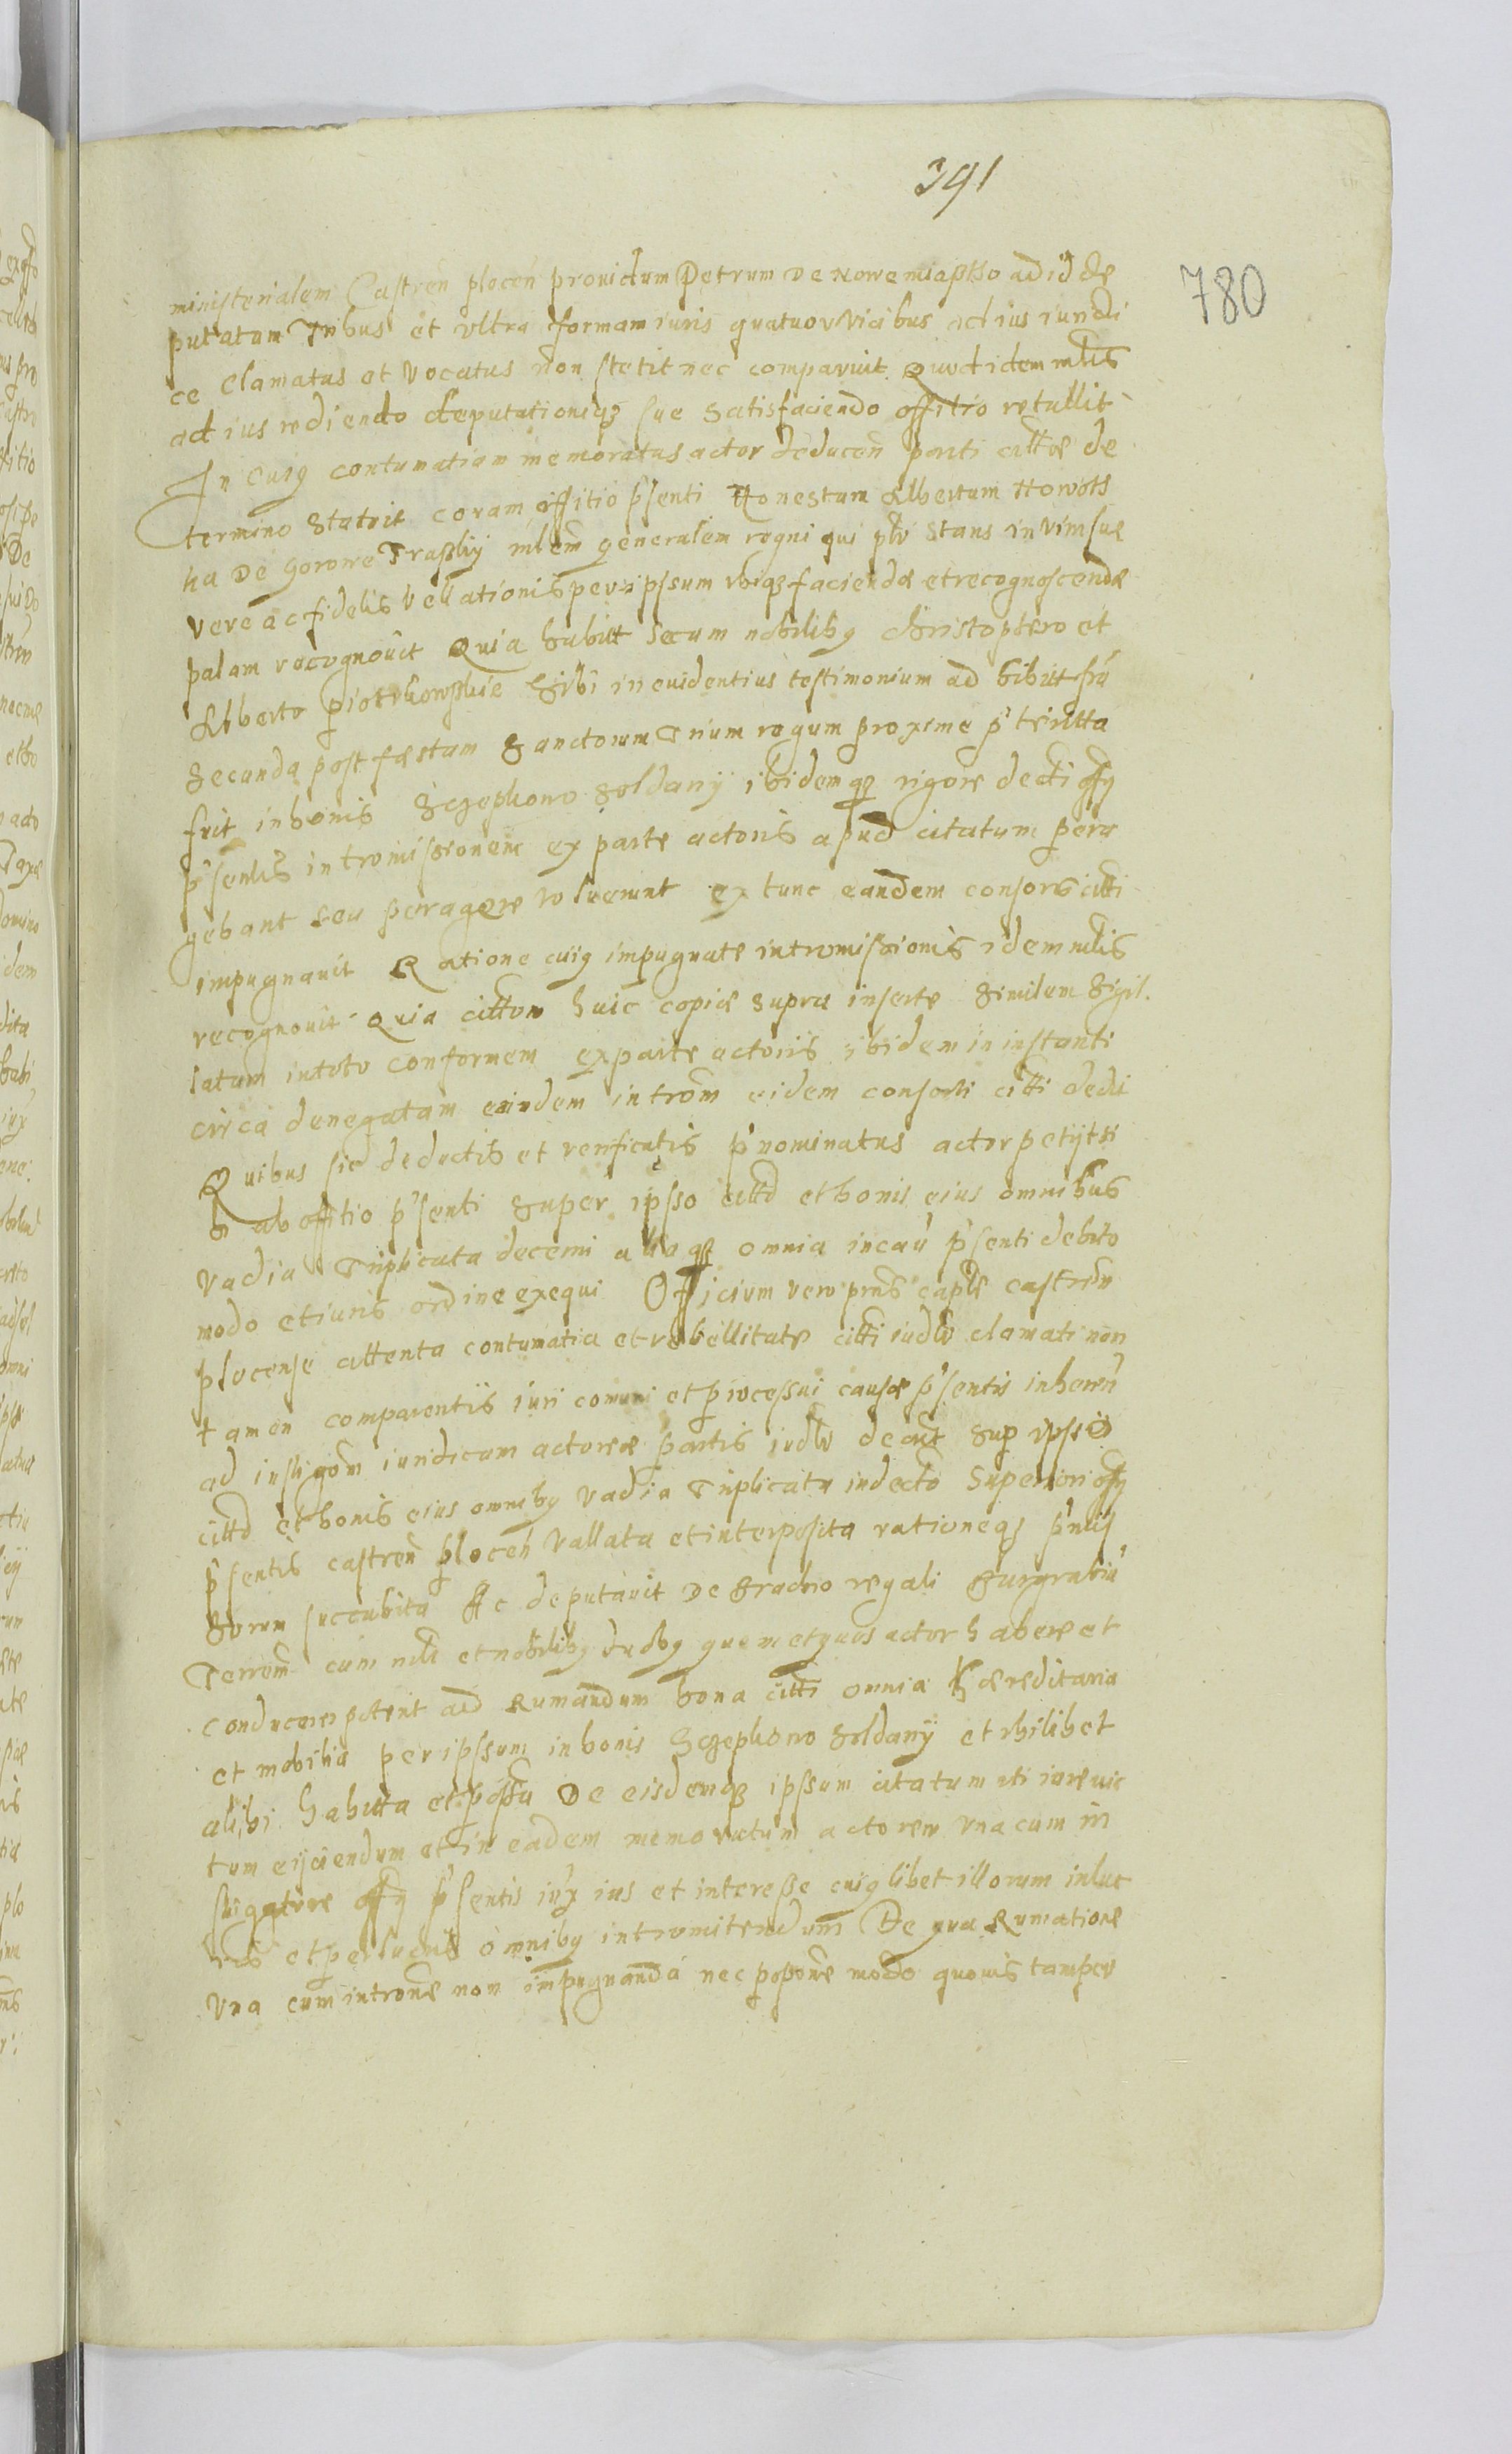 391
780
ministerialem Castren̄ plocen̄ prouidum Petrum De Nowemiastko ad id de
putatum Tribus et vltra formam iuris quatuor vicibus ad ius iuridi
ce clamatus et vocatus non stetit nec comparuit Quod idem mlis
ad ius rediendo deputationiqꝫ sue satisfaciendo offitio retullit
In cuiꝰ contumatiam memoratus actor deducen̄ parti cittae de
termino Statuit coram offitio p̄senti Honestum Albertum
ka De Gorowe Traskij mlem generalem regni qui stans in vim suae
vere ac fidelis rellationis per ipsum vbiqꝫ faciendae et recognoscendae
palam recognouit Quia habuit secum nobilibꝰ Christophero et
Alberto piotrkowskie sibi in euidentius testimonium ad hibitis fr̄a
Secunda post festum Sanctorum Trium regum proxime p̄teritta
fuit in bonis Sczepkowo Soldanij ibidemqꝫ rigore decti offꝰ
p̄sentis intromissionem ex parte actoris apud citatum pera
gebant seu peragere voluerunt ex tunc eandem consors citti
impugnauit Ratione cuiꝰ impugnate intromissionis idem mlis
recognouit Quia cittem huic copiae supra inserte similem Sigil.
latam in toto conformem ex parte actoris ibidem in instanti
circa denegatam eandem introm̄ eidem consorti citti dedit
Quibus sic deductis et verificatis p̄nominatus actor petijt si
bi ab offitio p̄senti super ipso citto et bonis eius omnibus
vadia Triplicata decerni aliaqꝫ omnia in cau p̄senti debito
modo et iuris ordine exequi Officium vero pn̄s caple castren̄
plocense attenta contumatia et rebellitate citti iudlr clamati non
tamen comparentis iuri comuni et processui causae p̄sentis inheren̄
ad instigōm iuridicam actoreae partis iudlr decreuit sup ipso
citto et bonis eius omnibꝰ vadia Triplicata in decto superiori offꝰ
p̄sentis castren̄ plocen̄ vallata et interposita rationeqꝫ
succubita Ac deputauit De gradu regali Burgrabiū
Terren̄ cum mli et nobilibꝰ duobꝰ quem et quos actor habere et
conducere poterit ad Rumandum bona citti omnia haereditaria
et mobilia per ipsum in bonis Sczepkowo Soldanij et vbilibet
alibi habitta et possessa De eisdemqꝫ ipsum citatum uti iure vic
tum eijciendum et in eadem memoratum actorem vna cum in
stigatore offꝰ p̄sentis iux ius et interesse cuiꝰlibet illorum in luc
ris et perlucris omnibꝰ intromitendum De qua Rumatione
vna cum introne non impugnanda nec propone modo quouis tamper